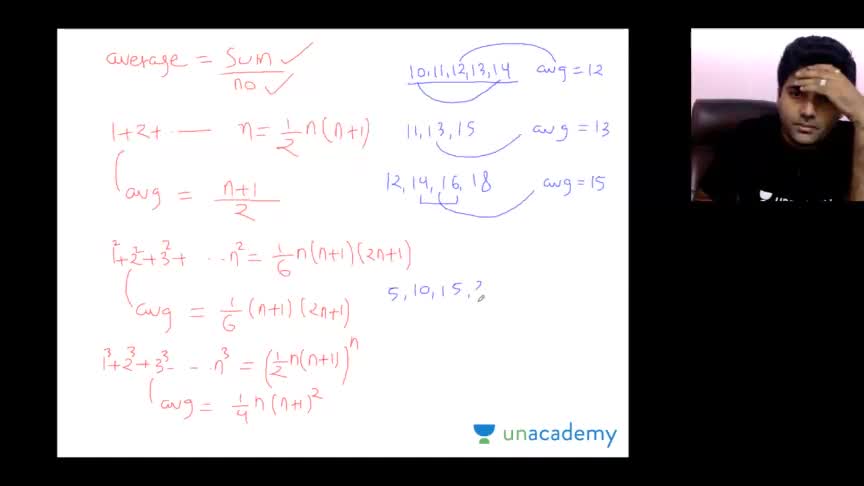 average = Sum / no
1+2+ ..... n = 1/2 n(n+1)
avg = n+1 / 2
1²+2²+3²+ ...n² = 1/6 n(n+1)(2n+1)
avg = 1/6 (n+1)(2n+1)
1³+2³+3³- - ..n³ = (1/2 n(n+1))ⁿ
avg = 1/4 n(n+1)²
10,11,12,13,14 avg = 12
11,13,15 avg = 13
12,14,16,18 avg = 15
5,10,15,
unacademy